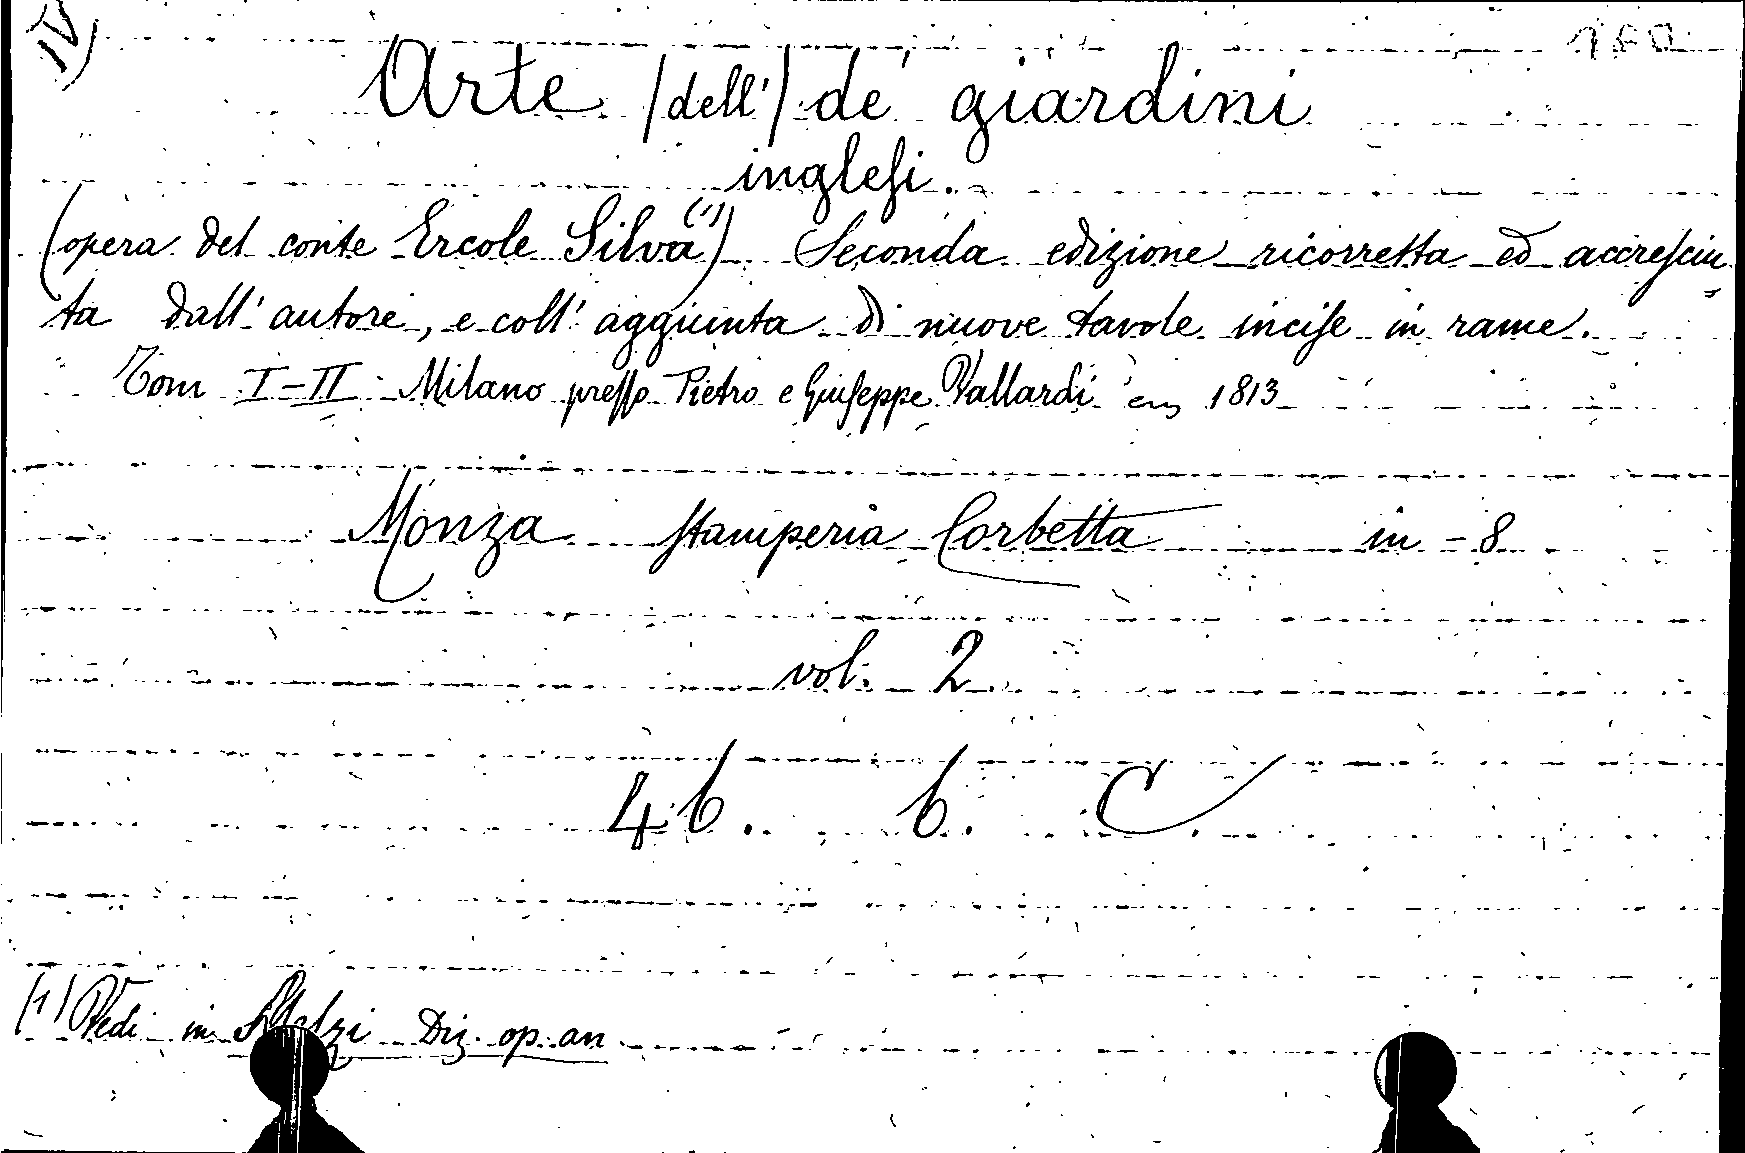 IV)
160
Arte (dell') de' giardini
inglesi.
(opera del conte Ercole Silva (1)) Seconda edizione ricorretta ed accresciu=
ta dall' autore, e coll' aggiunta di nuove tavole incise in rame.
Tom I-II Milano presso Pietro e Giuseppe Vallardi 1813
Monza stamperia Corbetta in-8
vol. 2
46. 6. C
(1) Vedi in Melzi Diz. op. an